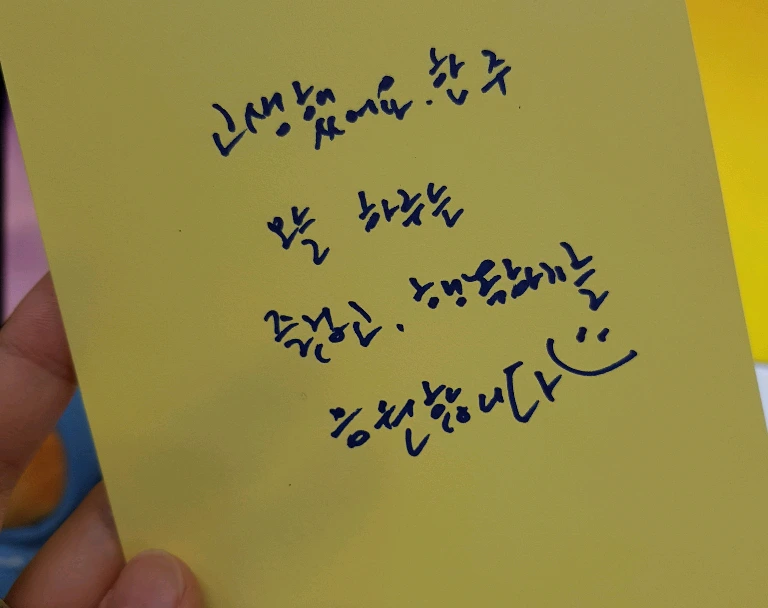 고생했어요. 한 주
오늘 하루는
즐겁고. 행복하기를
응원합니다